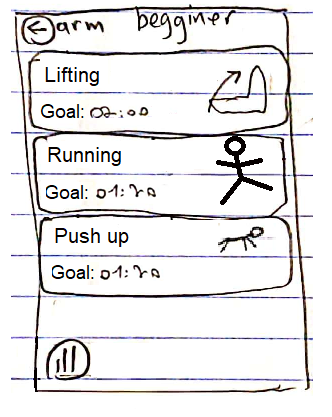 arm begginer
Lifting
Goal: 02:00
Running
Goal: 01:20
Push up
Goal: 01:20